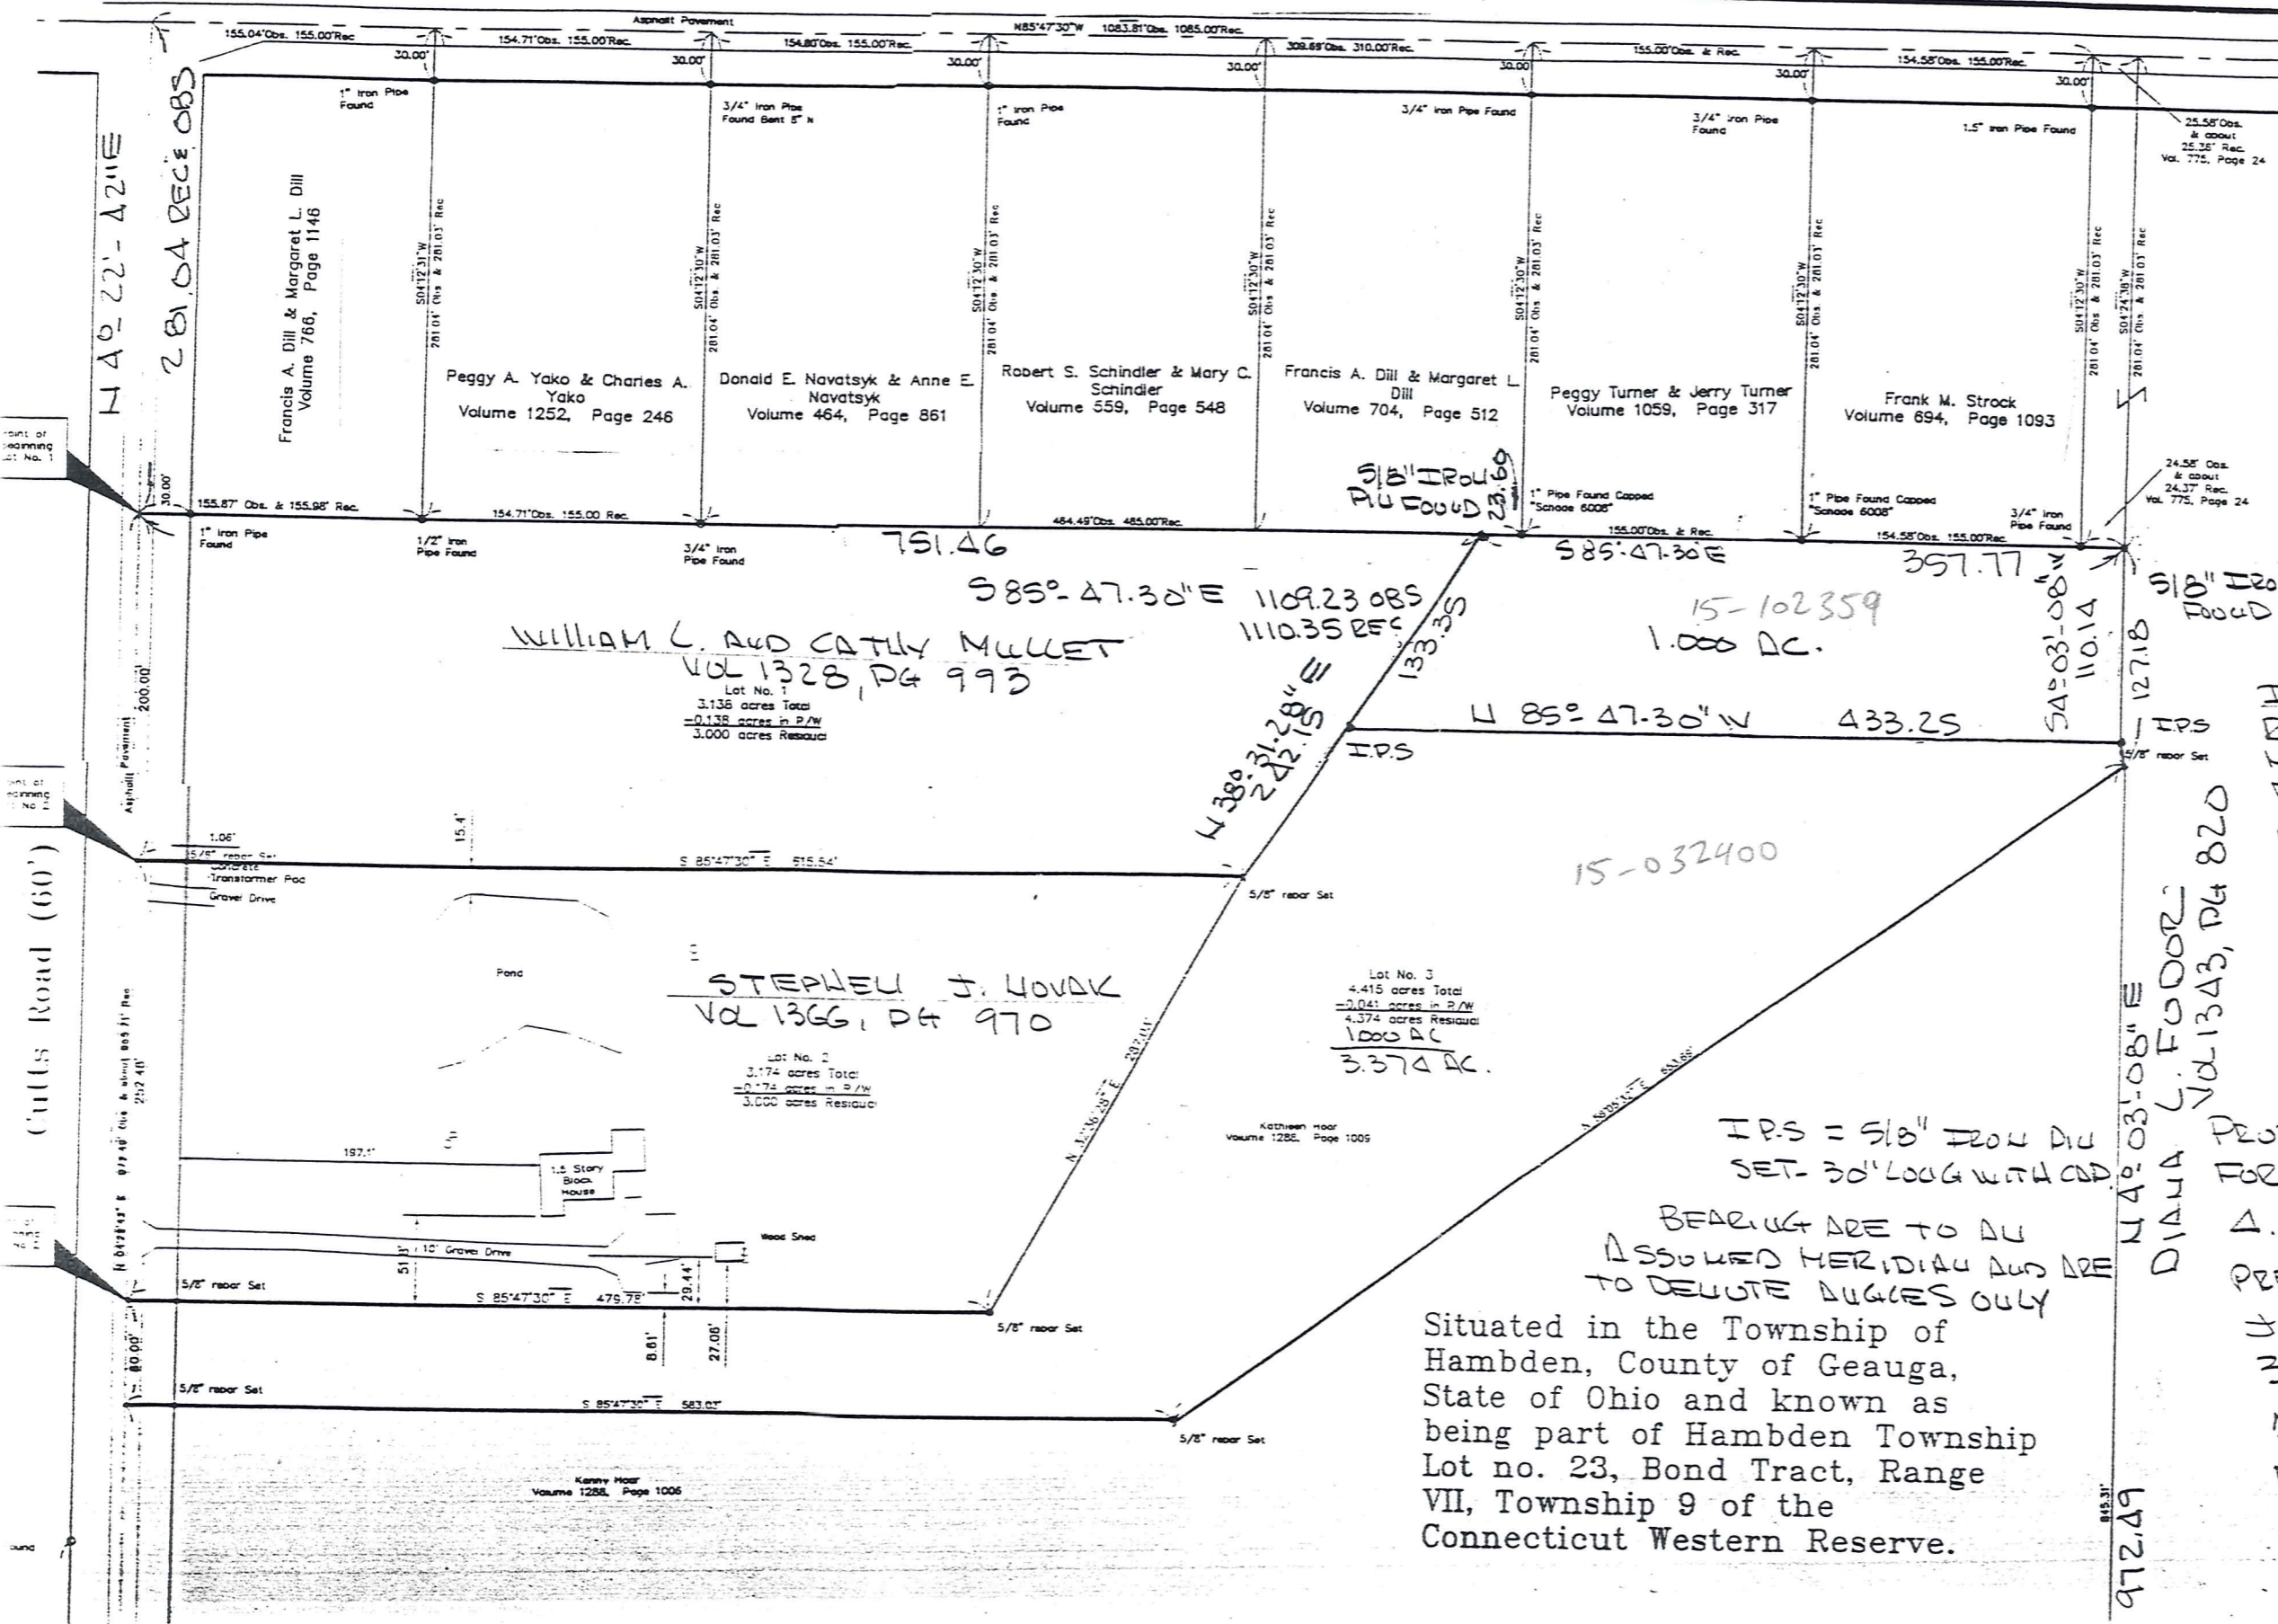 Asphalt Pavement
N85°47'30"W 1083.81'Obs. 1085.00'Rec.
155.04'Obs. 155.00'Rec
154.71'Obs. 155.00'Rec.
154.80'Obs. 155.00'Rec.
309.69'Obs. 310.00'Rec.
155.00'Obs. & Rec.
154.58'Obs. 155.00'Rec.
30.00'
30.00'
30.00'
30.00'
30.00'
30.00'
30.00'
1" Iron Pipe
Found
3/4" Iron Pipe
Found Bent 5" N
1" Iron Pipe
Found
3/4" Iron Pipe Found
3/4" Iron Pipe
Found
1.5" Iron Pipe Found
25.58'Obs.
& about
25.36' Rec.
Vol. 775, Page 24
N 4º-22'-42"E
281.04 REC & OBS
Francis A. Dill & Margaret L. Dill
Volume 766, Page 1146
S04°12'31"W
281.04' Obs & 281.03' Rec
S04°12'30"W
281.04' Obs & 281.03' Rec
S04°12'30"W
281.04' Obs & 281.03' Rec
S04°12'30"W
281.04' Obs & 281.03' Rec
S04°12'30"W
281.04' Obs & 281.03' Rec
S04°12'30"W
281.04' Obs & 281.03' Rec
S04°12'30"W
281.04' Obs & 281.03' Rec
S04°24'38"W
281.04' Obs & 281.03' Rec
Peggy A. Yako & Charles A.
Yako
Volume 1252, Page 246
Donald E. Navatsyk & Anne E.
Navatsyk
Volume 464, Page 861
Robert S. Schindler & Mary C.
Schindler
Volume 559, Page 548
Francis A. Dill & Margaret L
Dill
Volume 704, Page 512
Peggy Turner & Jerry Turner
Volume 1059, Page 317
Frank M. Strock
Volume 694, Page 1093
Point of
Beginning
Lot No. 1
30.00'
155.87' Obs. & 155.98' Rec.
154.71'Obs. 155.00 Rec.
464.49'Obs. 465.00'Rec.
155.00'Obs. & Rec.
154.58'Obs. 155.00'Rec.
1" Iron Pipe
Found
1/2" Iron
Pipe Found
3/4" Iron
Pipe Found
5/8" IRON
PIN FOUND
23.69
1" Pipe Found Capped
"Schade 6008"
1" Pipe Found Capped
"Schade 6008"
3/4" Iron
Pipe Found
24.58' Obs.
& about
24.37' Rec.
Vol. 775, Page 24
751.46
S 85º-47-30"E 1109.23 OBS
1110.35 REC
S85º-47-30"E
357.77
5/8" IRO
FOUND
WILLIAM L. AND CATHY MULLET
VOL 1328, PG 993
Lot No. 1
3.138 acres Total
-0.138 acres in R/W
3.000 acres Residual
15-102359
1.000 AC.
133.35
S4º-03'-08"W
110.14
127.18
N 38º-31-28"E
242.15
N 85º-47-30"W 433.25
I.P.S
I.P.S
5/8" rebar Set
200.00'
Asphalt Pavement
1.06'
5/8" rebar Set
Concrete
Transformer Pad
Gravel Drive
15.4'
S 85°47'30" E 615.54'
5/8" rebar Set
15-032400
Cutts Road (60')
252.40'
Pond
STEPHEN J. NOVAK
VOL 1366, PG 970
Lot No. 2
3.174 acres Total
-0.174 acres in R/W
3.000 acres Residual
Lot No. 3
4.415 acres Total
-0.041 acres in R/W
4.374 acres Residual
1.000 AC
3.374 AC.
N 32°36'28" E
Kathleen Hoar
Volume 1288, Page 1009
197.1'
1.5 Story
Block
House
Wood Shed
10' Gravel Drive
51.8'
29.44'
5/8" rebar Set
S 85°47'30" E 479.78'
5/8" rebar Set
8.61'
27.08'
60.00'
5/8" rebar Set
S 85°47'30" E 583.03'
5/8" rebar Set
Kenny Hoar
Volume 1288, Page 1006
I.P.S = 5/8" IRON PIN
SET- 30" LONG WITH CAP
BEARING ARE TO AN
ASSUMED MERIDIAN AND ARE
TO DENOTE ANGLES ONLY
N 4º-03'-08" E
DIANA L. FODOR
VOL 1343, PG 820
Situated in the Township of
Hambden, County of Geauga,
State of Ohio and known as
being part of Hambden Township
Lot no. 23, Bond Tract, Range
VII, Township 9 of the
Connecticut Western Reserve.
845.31'
972.49
FOR
A.